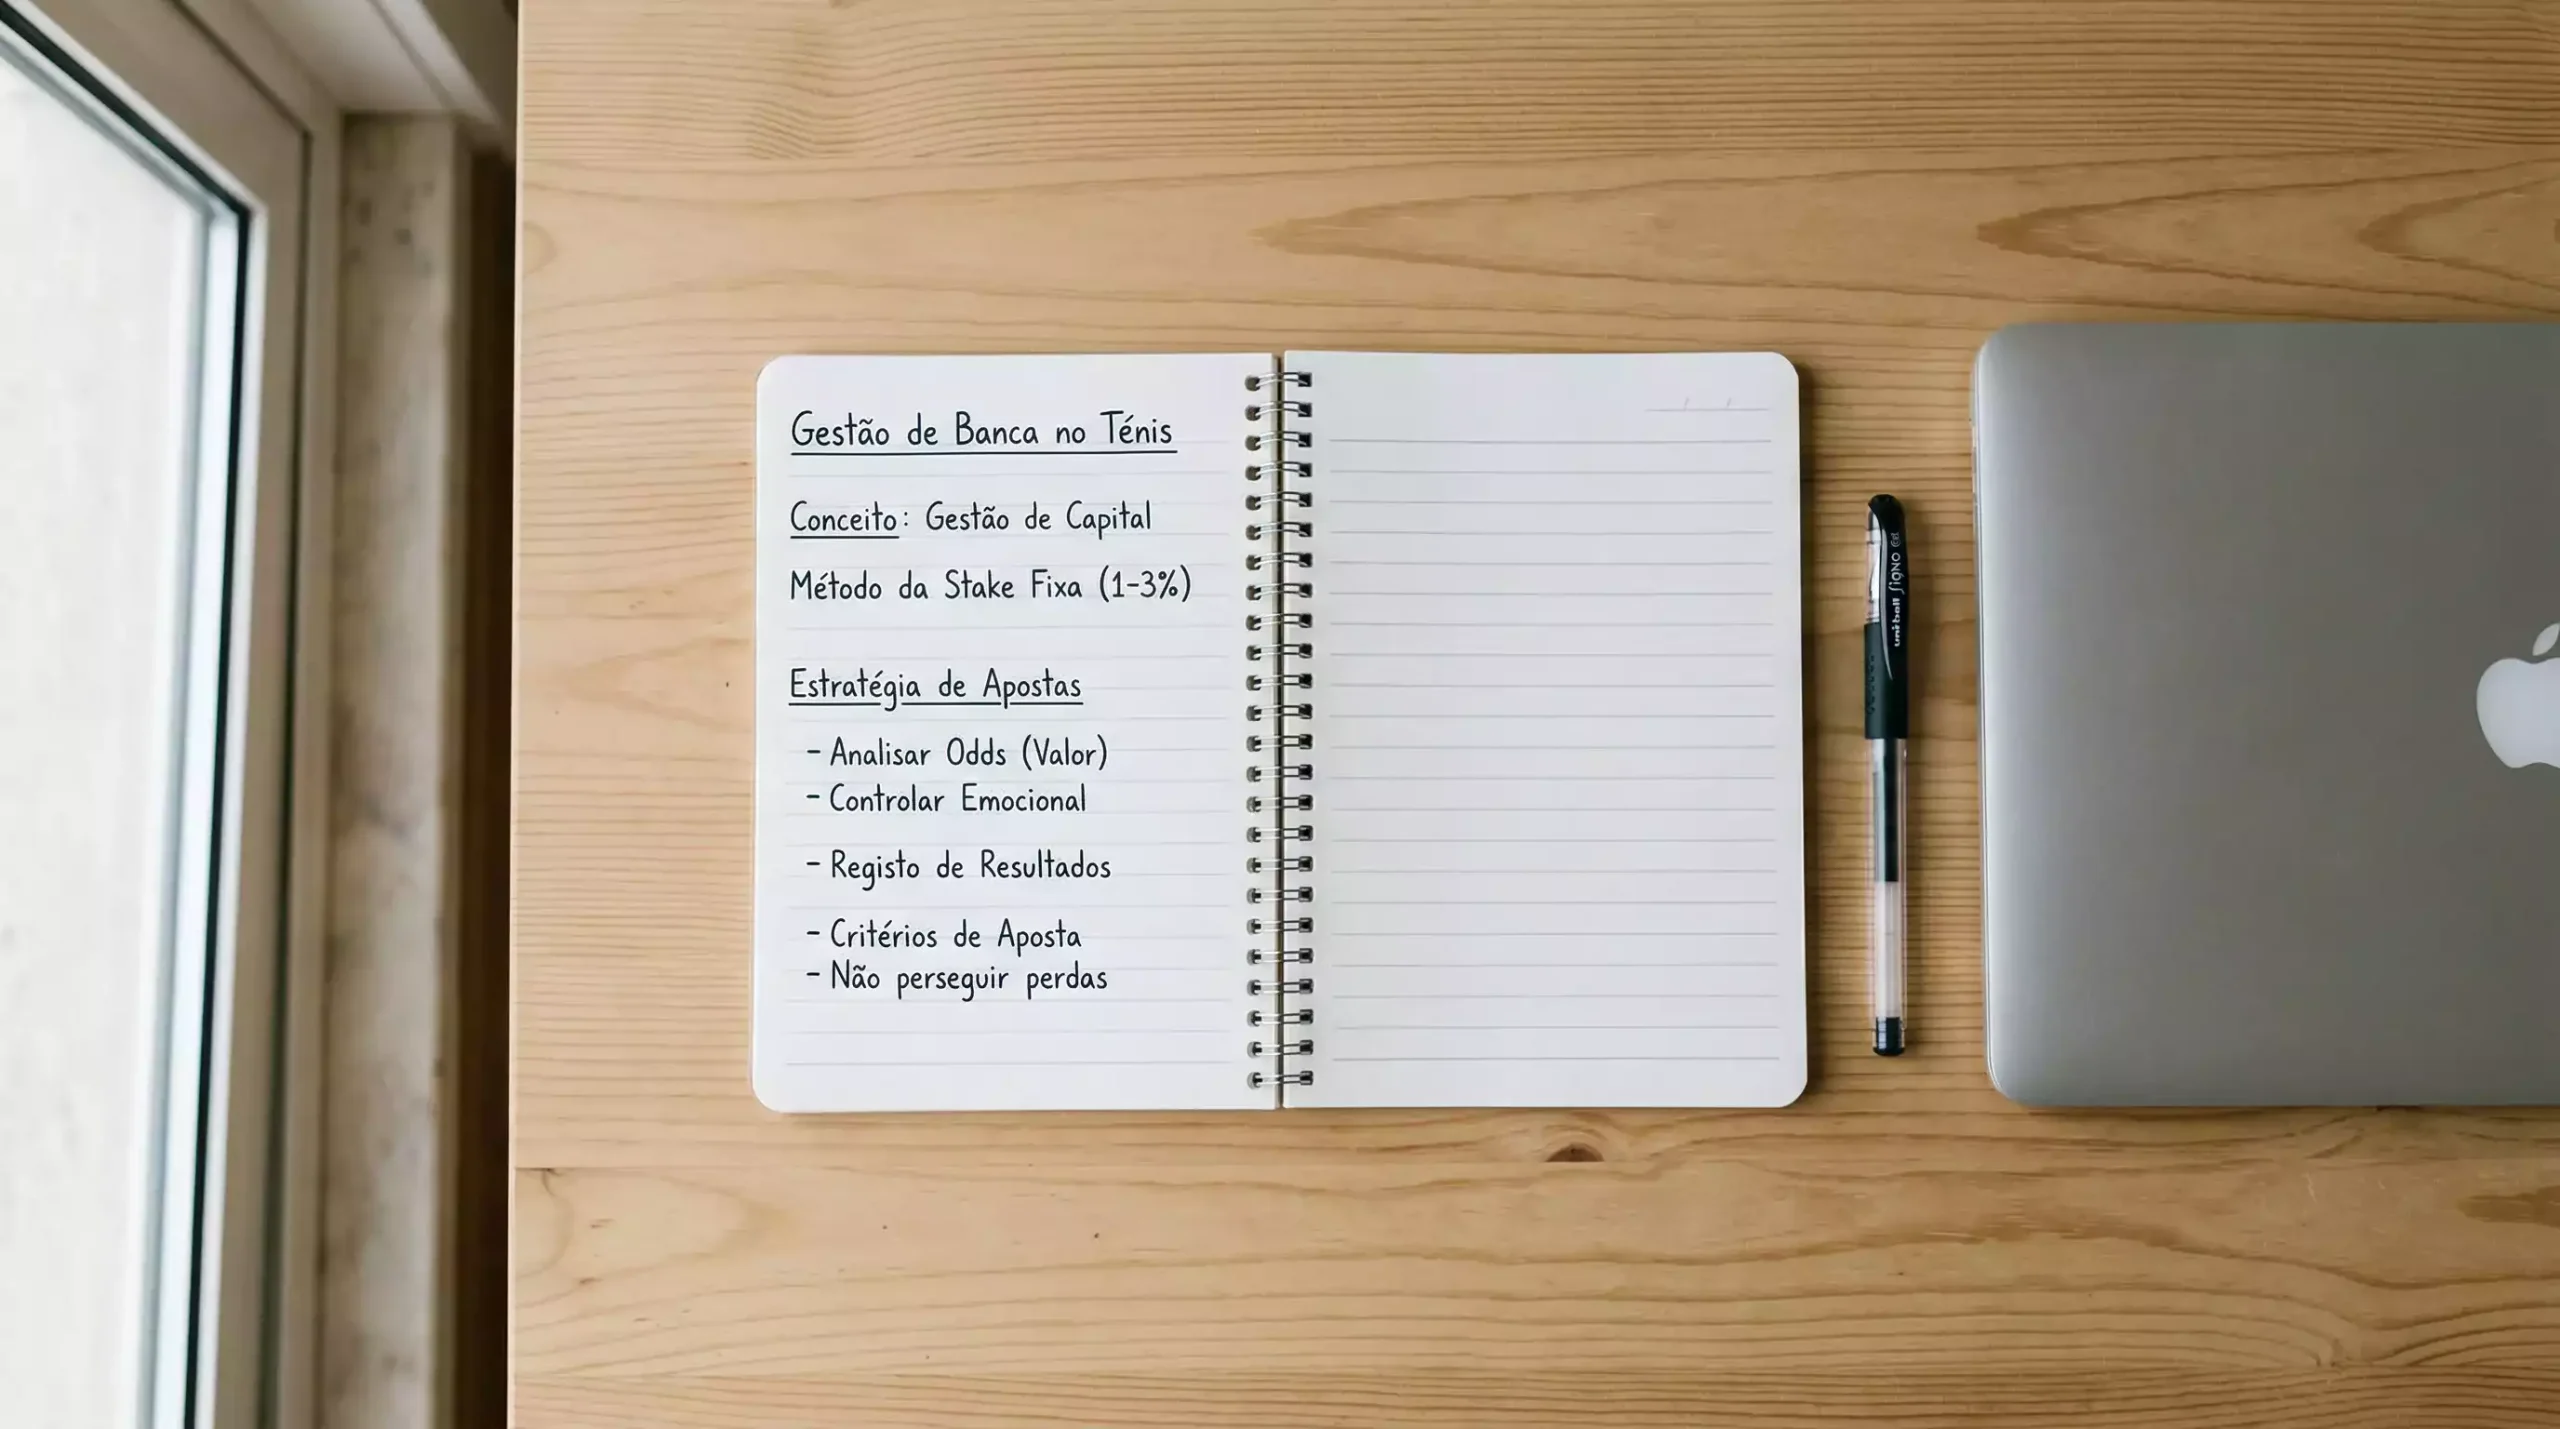 Gestão de Banca no Ténis
Conceito: Gestão de Capital
Método da Stake Fixa (1-3%)
Estratégia de Apostas
- Analisar Odds (Valor)
- Controlar Emocional
- Registo de Resultados
- Critérios de Aposta
- Não perseguir perdas
uni-ball Signo